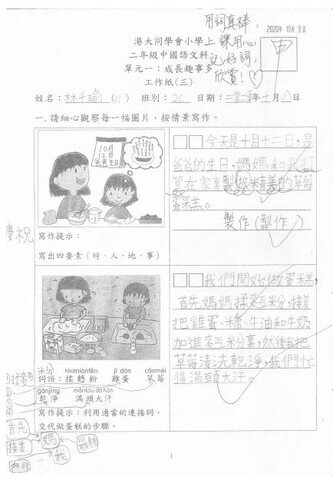 用詞真棒，
上課用心
記好詞，
欣賞！♡
2020年10月30日
甲
港大同學會小學
二年級中國語文科
單元一：成長趣事多
工作紙(三)
姓名：林千瑜(11) 班別：2C 日期：二零二零年十月八日
一.請細心觀察每一幅圖片，按情景寫作。
10月12日
今天是十月十二日，是
爸爸的生日，媽媽和我打
算在家裏製做精美的草莓
蛋糕。
製作(製作)
慶祝
寫作提示：
寫出四要素（時、人、地、事）
我們開始做蛋糕，
首先媽媽搓麪粉，接着
把雞蛋、糖、牛油和牛奶
加進麪粉裏，然後我把
草莓清洗乾淨，我們忙
得滿頭大汗。
róumiànfěn jī dàn cǎoméi
詞語：搓麪粉 雞蛋 草莓
gānjìng mǎntóu dà hàn
乾淨 滿頭大汗
寫作提示：利用適當的連接詞，
交代做蛋糕的步驟。
首先
接着
媽
我
最後
1